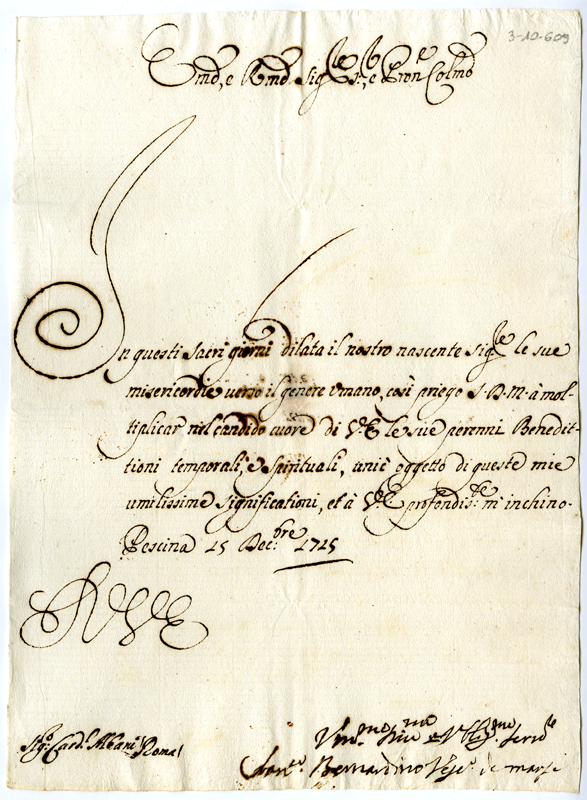 3-10-609
Emo, e Rmo Sigre, e Pron Colmo
In questi sacri giorni dilata il nostro nascente Sigre le sue
misericordie verso il genere umano, così priego S.D.M. à mol-
tiplicar nel candido cuore di V.E. le sue perenni Benedit-
tioni temporali, e spirituali, unic oggetto di queste mie
umilissime significationi, et à V.E. profondiste m'inchino.
Pescina 15 Decbre 1725
R V E
Sigo Card. Albani Roma
Umo Devmo et Obbligmo servre
Bernardino Vesc. de marsi